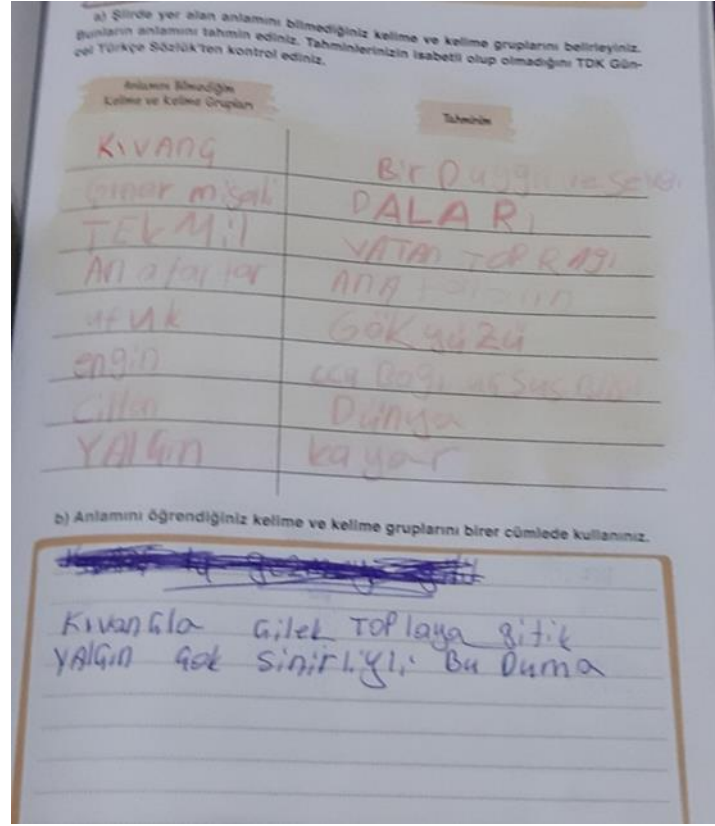 a) Şiirde yer alan anlamını bilmediğiniz kelime ve kelime gruplarını belirleyiniz.
Bunların anlamını tahmin ediniz. Tahminlerinizin isabetli olup olmadığını TDK Gün-
cel Türkçe Sözlük'ten kontrol ediniz.
Anlamını Bilmediğim
Kelime ve Kelime Grupları
Tahminim
KıVANÇ
Bir Duygu
Çınar misali
DALARı
TEKMil
VATAN TOPRAğı
Anafarlar
ANA
ufuk
GÖKyüzü
engin
Cihan
Dünya
YAlÇın
kayar
b) Anlamını öğrendiğiniz kelime ve kelime gruplarını birer cümlede kullanınız.
KıvanÇla Çilek TOPlaya gitik
YAlÇın Çok SinirLiyLi Bu Duma